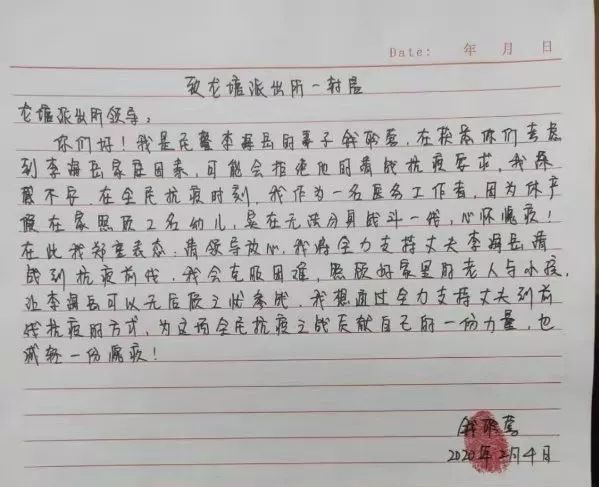 Date: 年 月 日
致龙塘派出所一封信
龙塘派出所领导:
你们好!我是民警李海岳的妻子钱聪莺,在获悉你们考虑
到李海岳家庭因素,可能会拒绝他的请战抗疫要求,我深
感不安。在全民抗疫时刻,我作为一名医务工作者,因为休产
假在家照顾2名幼儿,实在无法分身战斗一线,心怀愧疚!
在此我郑重表态:请领导放心,我将全力支持丈夫李海岳请
战到抗疫前线,我会克服困难,照顾好家里的老人与小孩,
让李海岳可以无后顾之忧参战,我想通过全力支持丈夫到前
线抗疫的方式,为这场全民抗疫之战贡献自己的一份力量,也
减轻一份愧疚!
钱聪莺
2020年2月4日